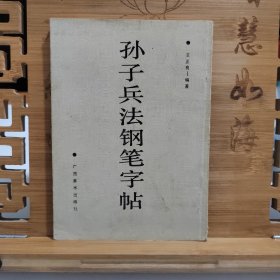 孙子兵法钢笔字帖
●王正良—编著
●广西美术出版社
智慧如海